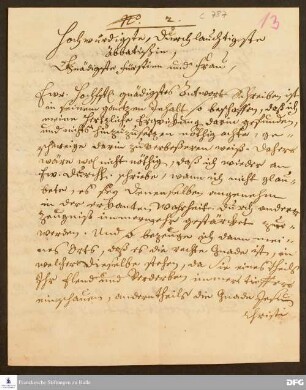 No. 2.
C 757
13
Hochwürdigste, Durchlauchtigste
Äbbatissin,
Gnädigste Fürstin und Frau,
Ew. Hochfl. gnädigstes Antwort-Schreiben ist
in seinem gantzen Inhalt so beschaffen, daß ich
meine Hertzliche Ergötzung darin gefunden,
und nichts hinzuzusetzen nöthig achte, ge-
schweige darin zu verbessern weiß. Daher
wäre wol nicht nöthig, daß ich wieder an
Ew. Durchl. schriebe, wann ich nicht glau-
bete, es sey Denenselben angenehm
in der erkanten Wahrheit durch anderer
Zeugniß immermehr gestärcket zu
werden. Und so bezeuge ich dann mei-
nes Orts, daß es die rechte Gnade ist, in
welcher Dieselbe stehen, da Sie eines theils
Ihr Elend und Verderben immer tieffer
einschauen, anderntheils die Gnade Jesu
Christi
Franckesche Stiftungen zu Halle
DFG